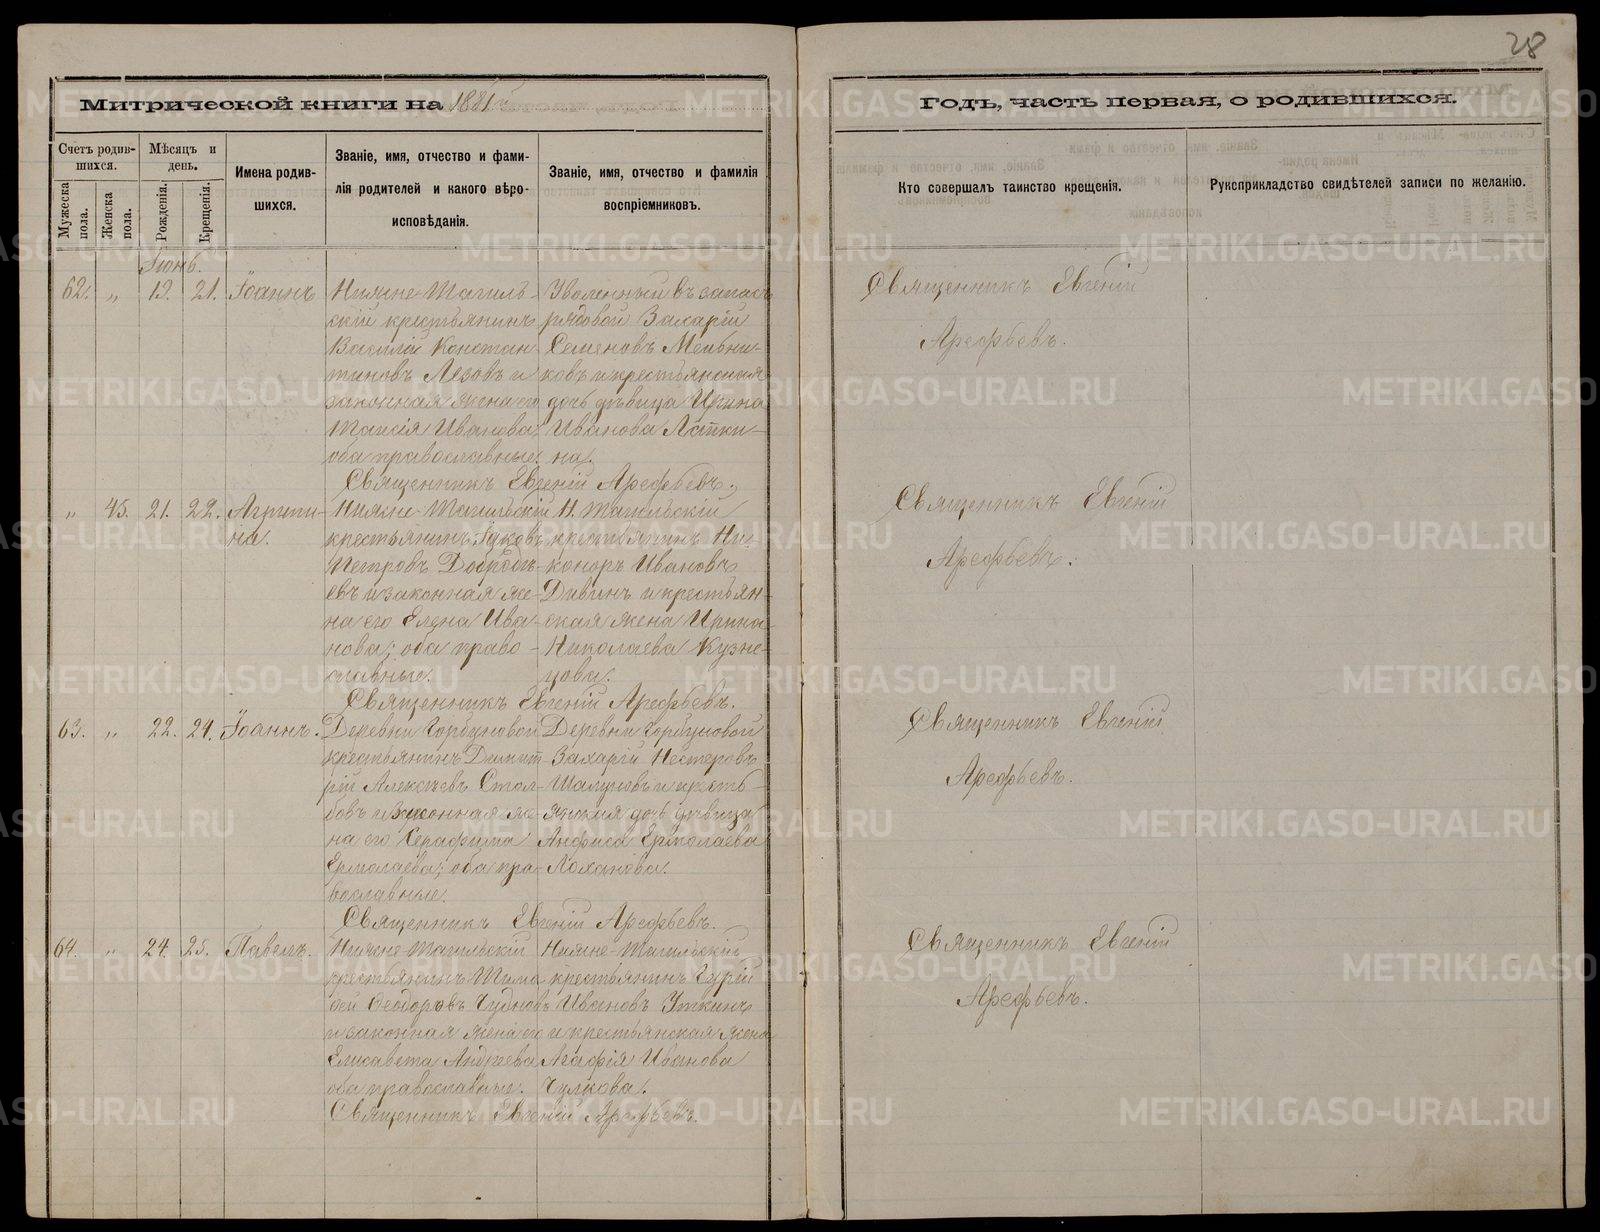 28
Митрической книги на 1881
Годъ, часть первая, о родившихся.
Счетъ родив-
шихся.
Мужеска
пола.
Женска
пола.
Мѣсяцъ и
день.
Рожденія.
Крещенія.
Имена родив-
шихся.
Званіе, имя, отчество и фами-
лія родителей и какого вѣро-
исповѣданія.
Званіе, имя, отчество и фамилія
воспріемниковъ.
Кто совершалъ таинство крещенія.
Рукеприкладство свидѣтелей записи по желанію.
62. " 19. 21. Іоаннъ
Нижне-Тагиль-
скій крестьянинъ
Василій Констан-
тиновъ Лезовъ и
законная жена его
Таисія Иванова;
оба православные.
Уволенный въ запасъ
рядовой Захарій
Семеновъ Мельни-
ковъ и крестьянская
дочь дѣвица Ирина
Иванова Лапки-
на.
Священникъ Евгеній Арефьевъ.
Священникъ Евгеній
Арефьевъ.
" 45. 21. 22. Агрипи-
на.
Нижне-Тагильскій
крестьянинъ Іаковъ
Петровъ Добродѣ-
евъ и законная же-
на его Елена Ива-
нова; оба право-
славные.
Н. Тагильскій
крестьянинъ Ни-
каноръ Ивановъ
Дивинъ и крестьян-
ская жена Ирина
Николаева Кузне-
цова.
Священникъ Евгеній Арефьевъ.
Священникъ Евгеній
Арефьевъ.
63. " 22. 24. Іоаннъ.
Деревни Горбуновой
крестьянинъ Димит-
рій Алексѣевъ Стол-
бовъ и законная же-
на его Серафима
Ермолаева; оба пра-
вославные.
Деревни Горбуновой
Захарій Нестеровъ
Шалуновъ и кресть-
янская дочь дѣвица
Анфиса Ермолаева
Лоханова.
Священникъ Евгеній Арефьевъ.
Священникъ Евгеній
Арефьевъ.
64. " 24. 25. Павелъ.
Нижне-Тагильскій
крестьянинъ Тимо
фей Феодоровъ Чудновъ
и законная жена его
Елисавета Андреева
оба православные.
Нижне-Тагильскій
крестьянинъ Гурій
Ивановъ Уткинъ
и крестьянская жена
Агафія Иванова
Чулкова.
Священникъ Евгеній Арефьевъ.
Священникъ Евгеній
Арефьевъ.
METRIKI.GASO-URAL.RU